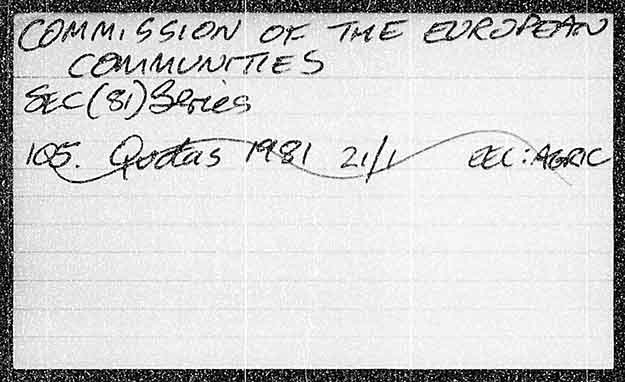 COMMISSION OF THE EUROPEAN
COMMUNITIES
SEC(81) Series
105. Qotas 1981 21/1 EEC: AGRIC